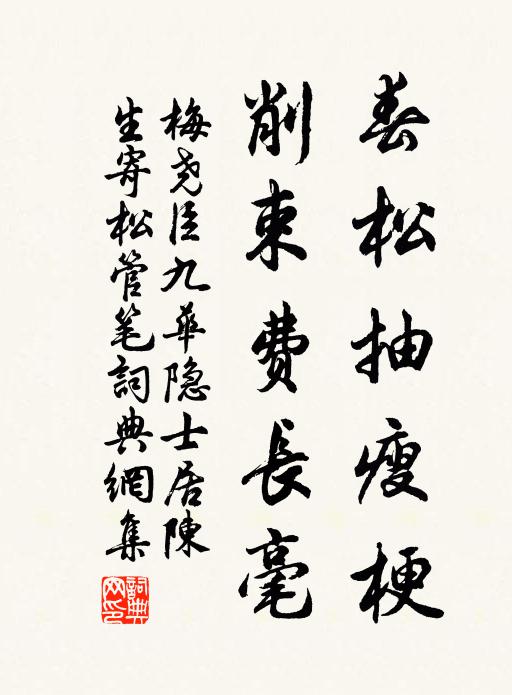 春松抽瘦梗
削束費長毫
梅尧臣九華隐士居陳
生寄松管笔詞典網集
詞典网印